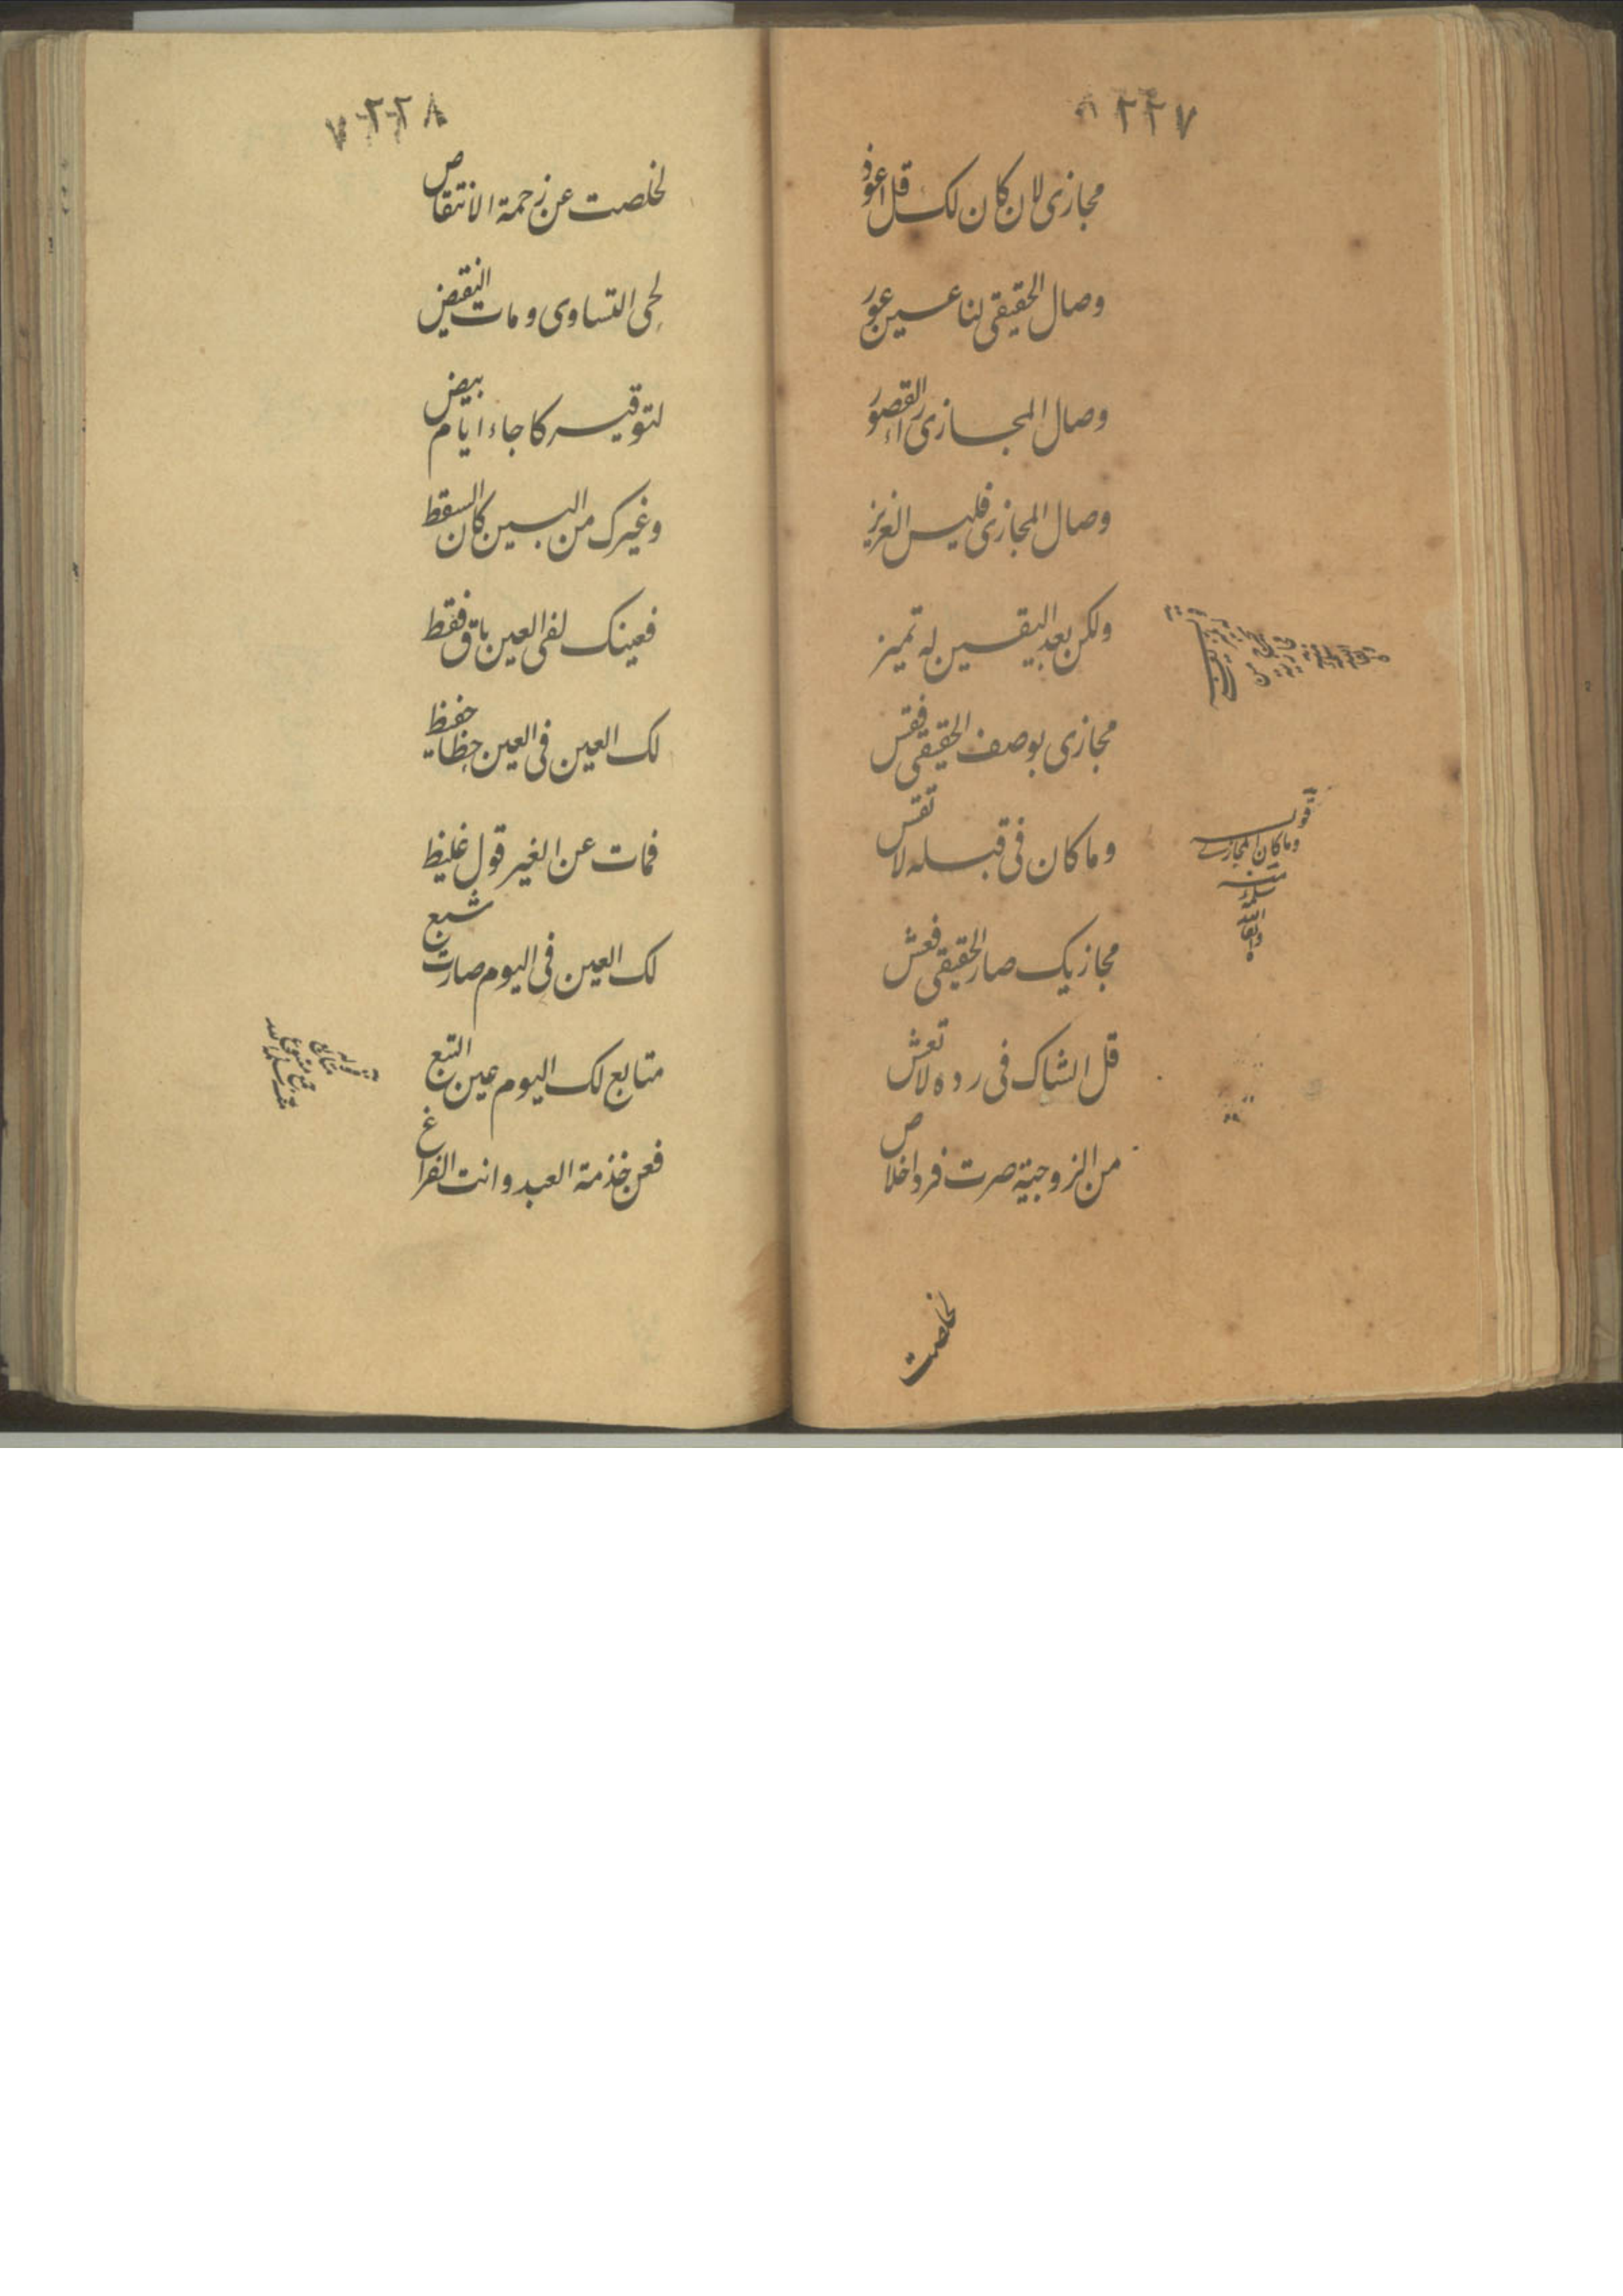 ٢٢٧
مجازی لان کان لک قل اعوذ
وصال الحقیقی لنا عین عبور
وصال المجازی راء القصور
وصال المجازی فلیس العزیز
ولکن بعد الیقین له تمیز
مجازی بوصف الحقیقی فقس
وما کان فی قبله لا تقس
مجازیک صار الحقیقی فعش
قل الشاک فی رده لا تعش
من الزوجیة صرت فردا خلاص
وما کان المجازے
لخلصت
٢٢٨
لخلصت عن زحمة الانتقاص
لحی التساوی ومات النقیض
لتوقیرکا جاء ایام بیض
وغیرک من البین کان السقط
فعینک لفی العین باق فقط
لک العین فی العین حظا حفیظ
فمات عن الغیر قول غلیظ
لک العین فی الیوم صارت شبع
متابع لک الیوم عین التبع
فعن خذمة العبد وانت الفراغ